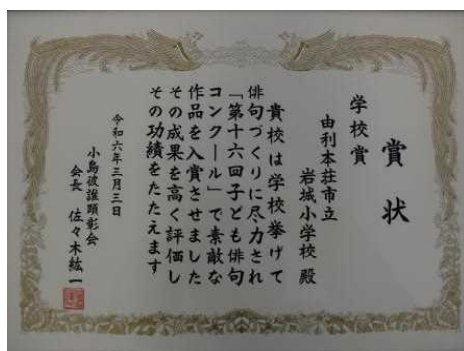 賞状
学校賞
由利本荘市立
岩城小学校 殿
貴校は学校挙げて
俳句づくりに尽力され
「第十六回子ども俳句
コンクール」で素敵な
作品を入賞させました
その成果を高く評価し
その功績をたたえます
令和六年三月三日
小島彼誰顕彰会
会長 佐々木紘一